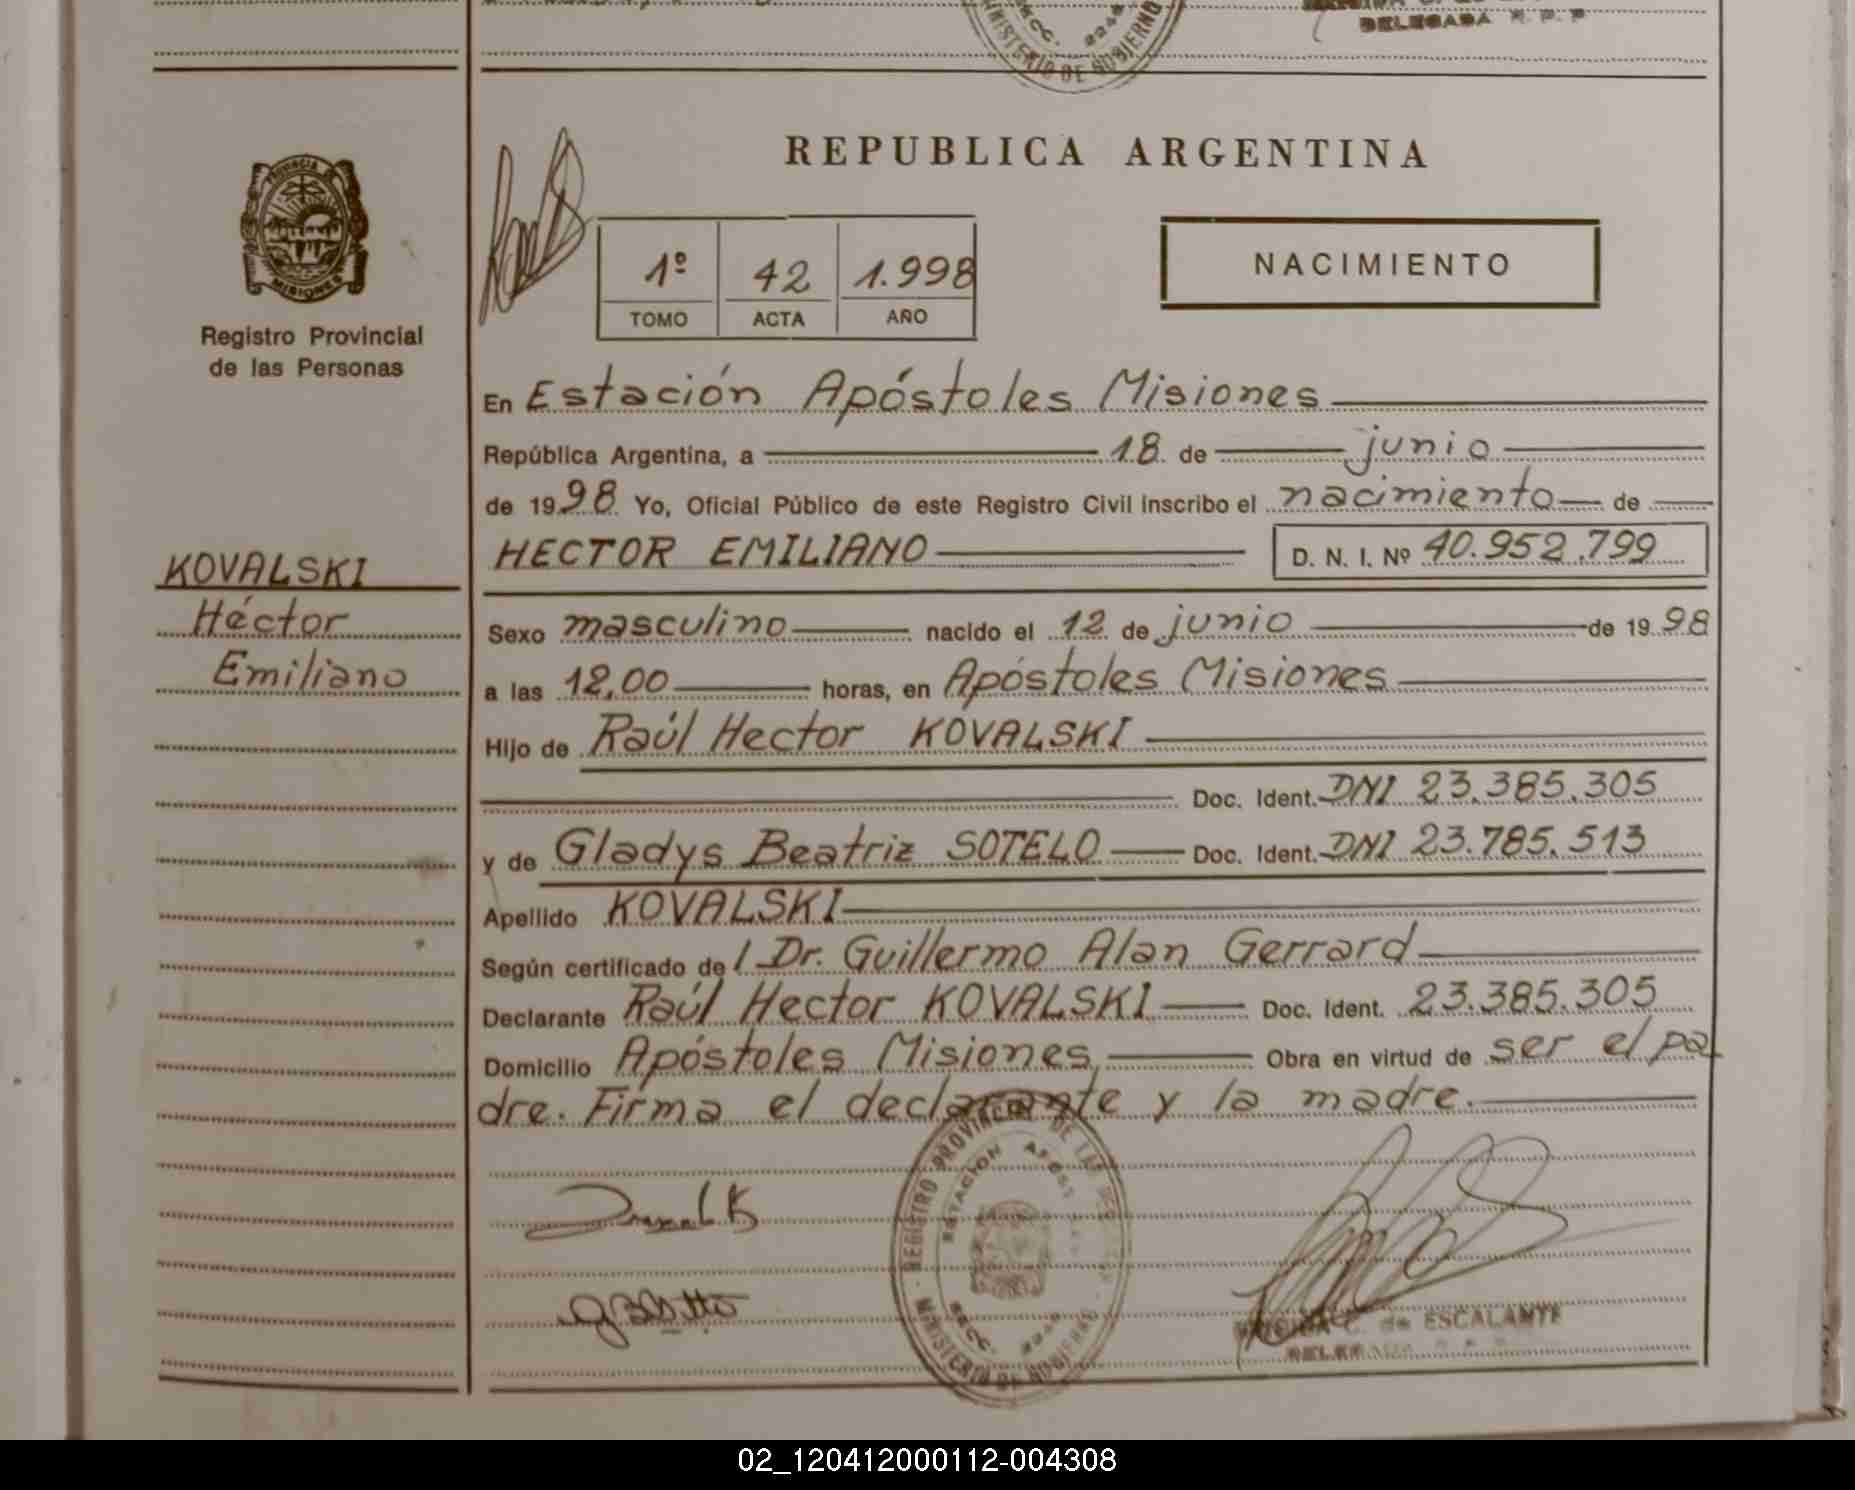 DELEGADA R. P. P
MINISTERIO DE GOBIERNO
PROVINCIA DE
MISIONES
Registro Provincial
de las Personas
REPUBLICA ARGENTINA
1º 42 1.998
TOMO ACTA AÑO
NACIMIENTO
En Estación Apóstoles Misiones
República Argentina, a 18 de junio
de 1998 Yo, Oficial Público de este Registro Civil inscribo el nacimiento de
HECTOR EMILIANO D. N. I. Nº 40.952.799
KOVALSKI
Héctor
Emiliano
Sexo masculino nacido el 12 de junio de 1998
a las 12,00 horas, en Apóstoles Misiones
Hijo de Raúl Hector KOVALSKI
Doc. Ident. DNI 23.385.305
y de Gladys Beatriz SOTELO Doc. Ident. DNI 23.785.513
Apellido KOVALSKI
Según certificado de / Dr. Guillermo Alan Gerrard
Declarante Raúl Hector KOVALSKI Doc. Ident. 23.385.305
Domicilio Apóstoles Misiones Obra en virtud de ser el pa
dre. Firma el declarante y la madre.
REGISTRO PROVINCIAL DE LAS
ESTACION APOST
MINISTERIO DE GOBIERNO
C. de ESCALANTE
02_120412000112-004308